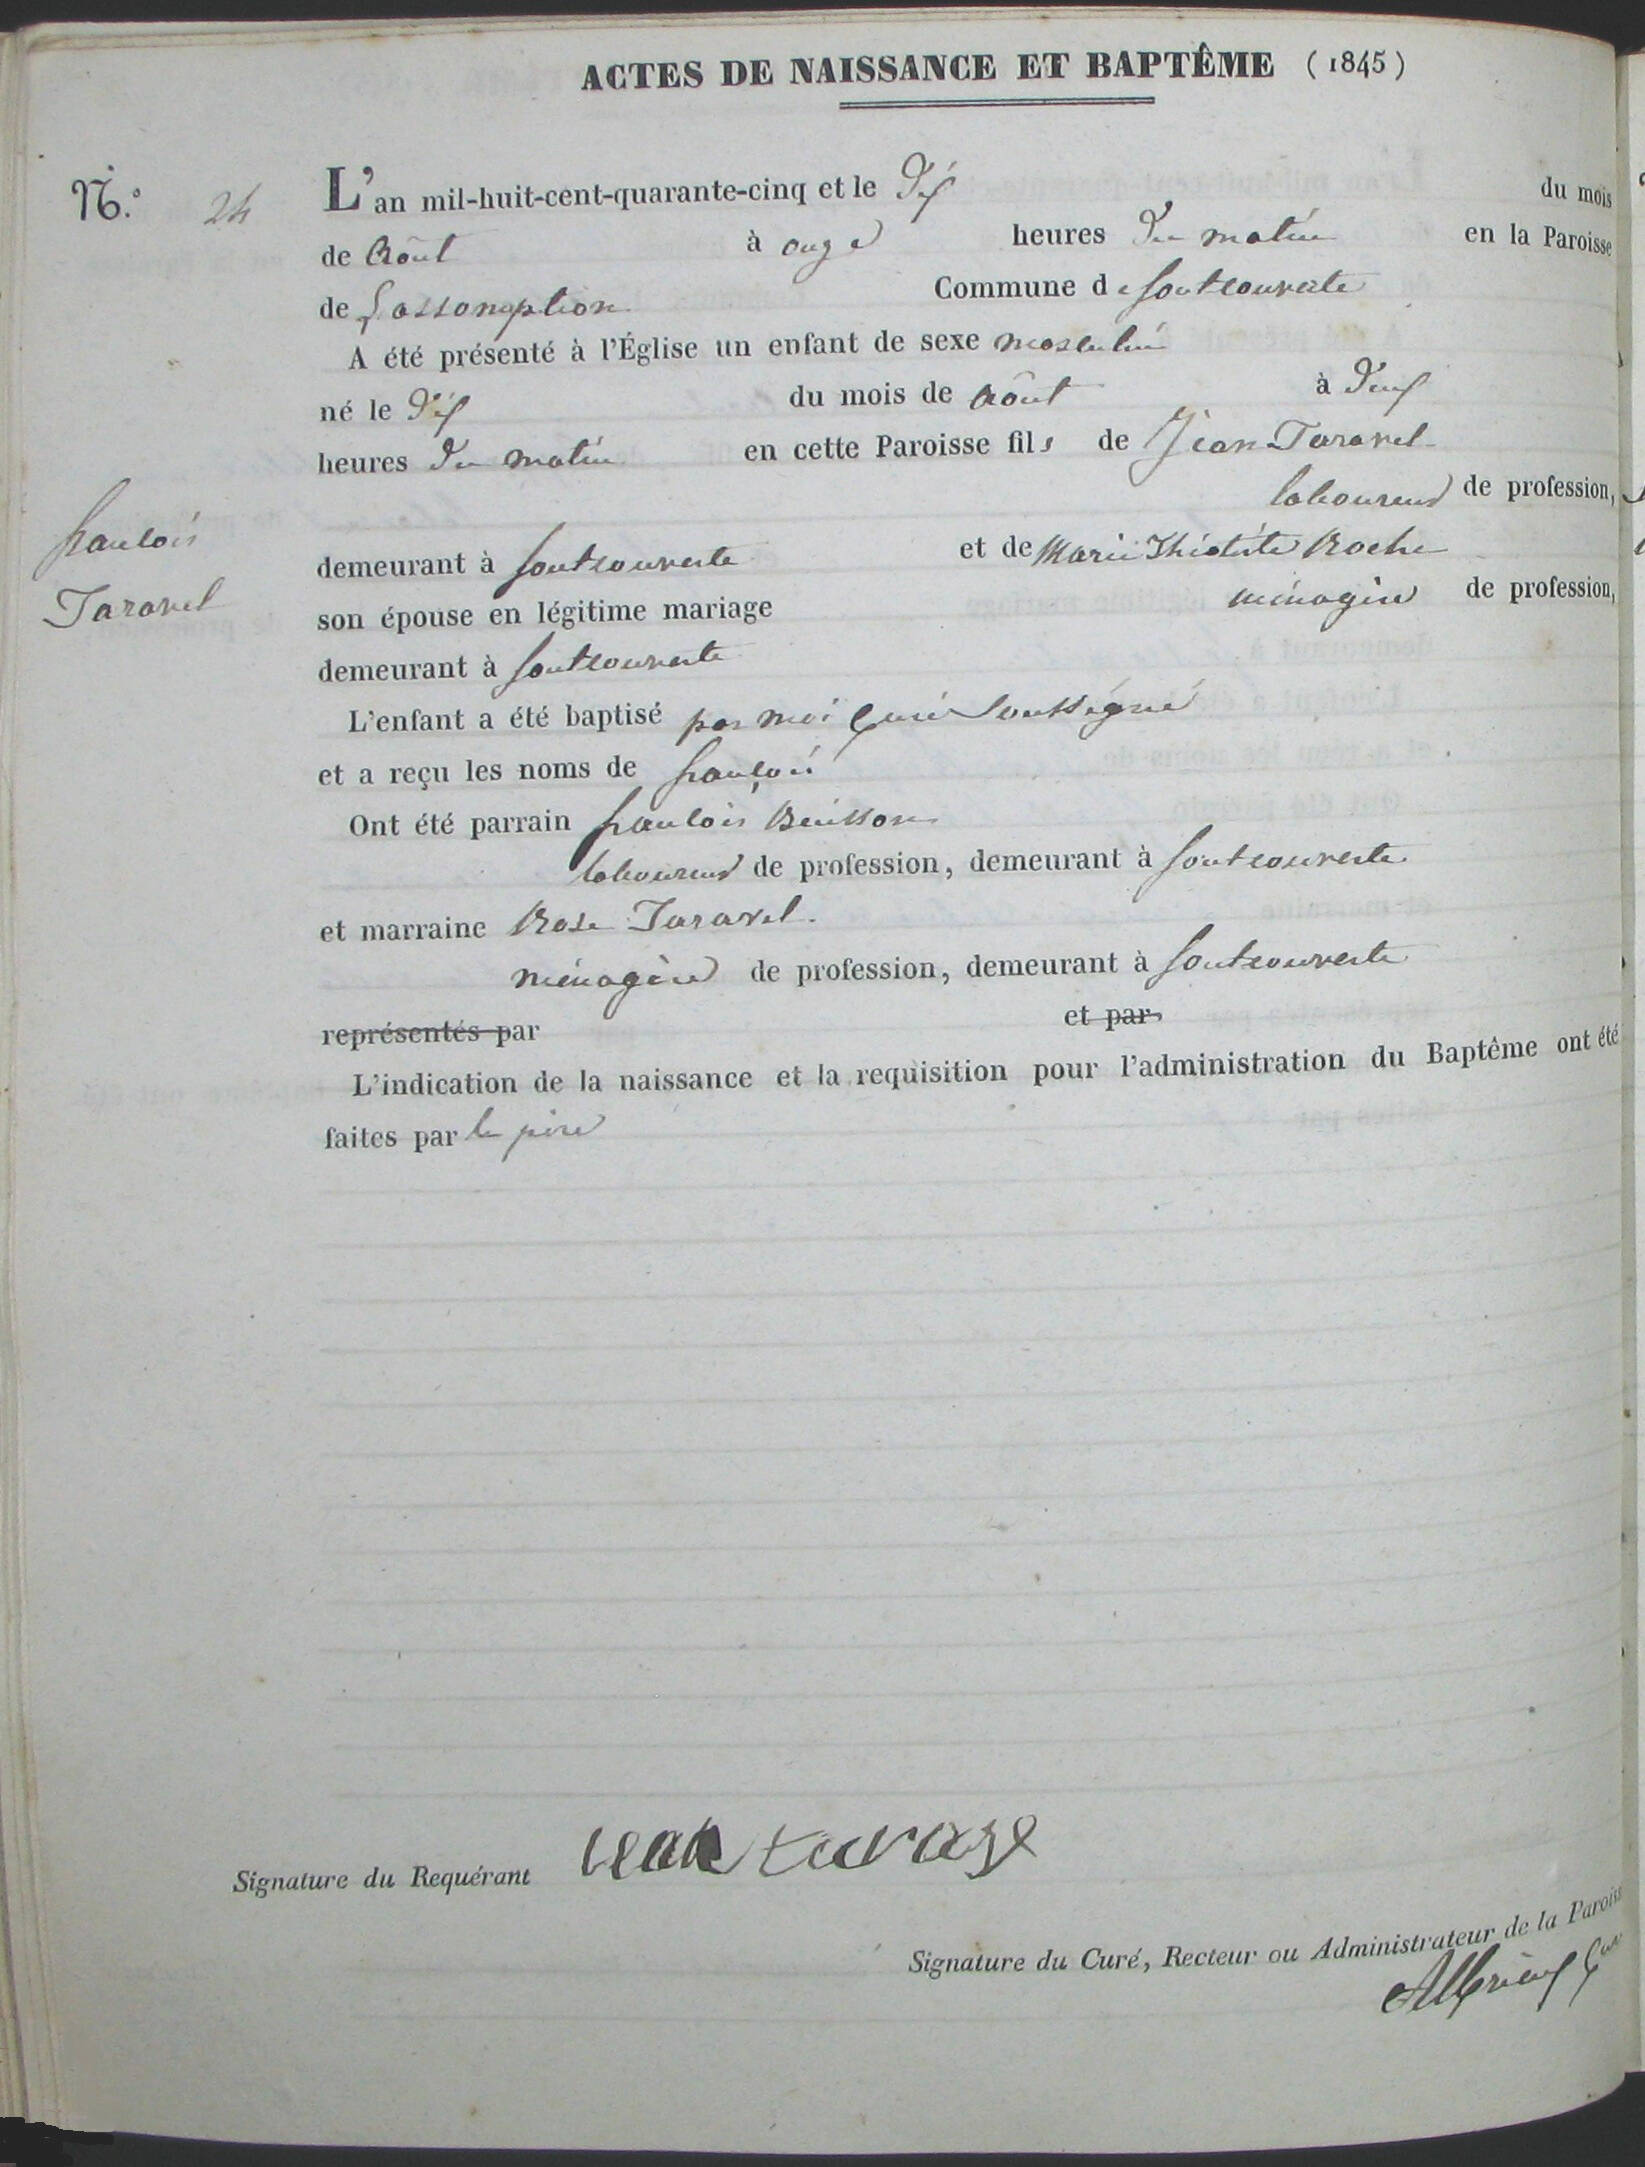 ACTES DE NAISSANCE ET BAPTÊME (1845)
N.° 24
L'an mil-huit-cent-quarante-cinq et le Dix du mois
de Août à onze heures du matin en la Paroisse
de L'assomption Commune de fontcouverte
A été présenté à l'Église un enfant de sexe masculin
né le Dix du mois de Août à Deux
heures du matin en cette Paroisse fils de Jean Taravel
laboureur de profession,
francois
Taravel
demeurant à fontcouverte et de Marie Théotiste Roche
son épouse en légitime mariage ménagère de profession,
demeurant à fontcouverte
L'enfant a été baptisé par moi Curé soussigné
et a reçu les noms de françois
Ont été parrain francois Buisson
laboureur de profession, demeurant à fontcouverte
et marraine Rose Taravel.
ménagère de profession, demeurant à fontcouverte
représentés par et par
L'indication de la naissance et la requisition pour l'administration du Baptême ont été
faites par le père
Signature du Requérant jean
Signature du Curé, Recteur ou Administrateur de la Paroiss
Curé